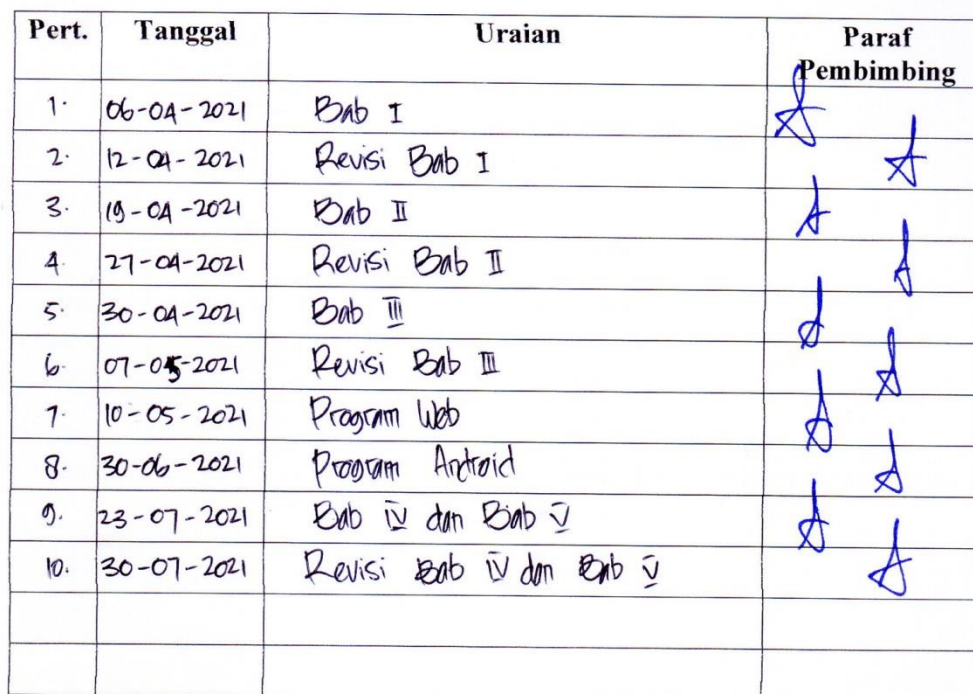 Pert. Tanggal Uraian Paraf Pembimbing
1. 06-04-2021 Bab I
2. 12-04-2021 Revisi Bab I
3. 19-04-2021 Bab II
4. 27-04-2021 Revisi Bab II
5. 30-04-2021 Bab III
6. 07-05-2021 Revisi Bab III
7. 10-05-2021 Program Web
8. 30-06-2021 Program Android
9. 23-07-2021 Bab IV dan Bab V
10. 30-07-2021 Revisi Bab IV dan Bab V